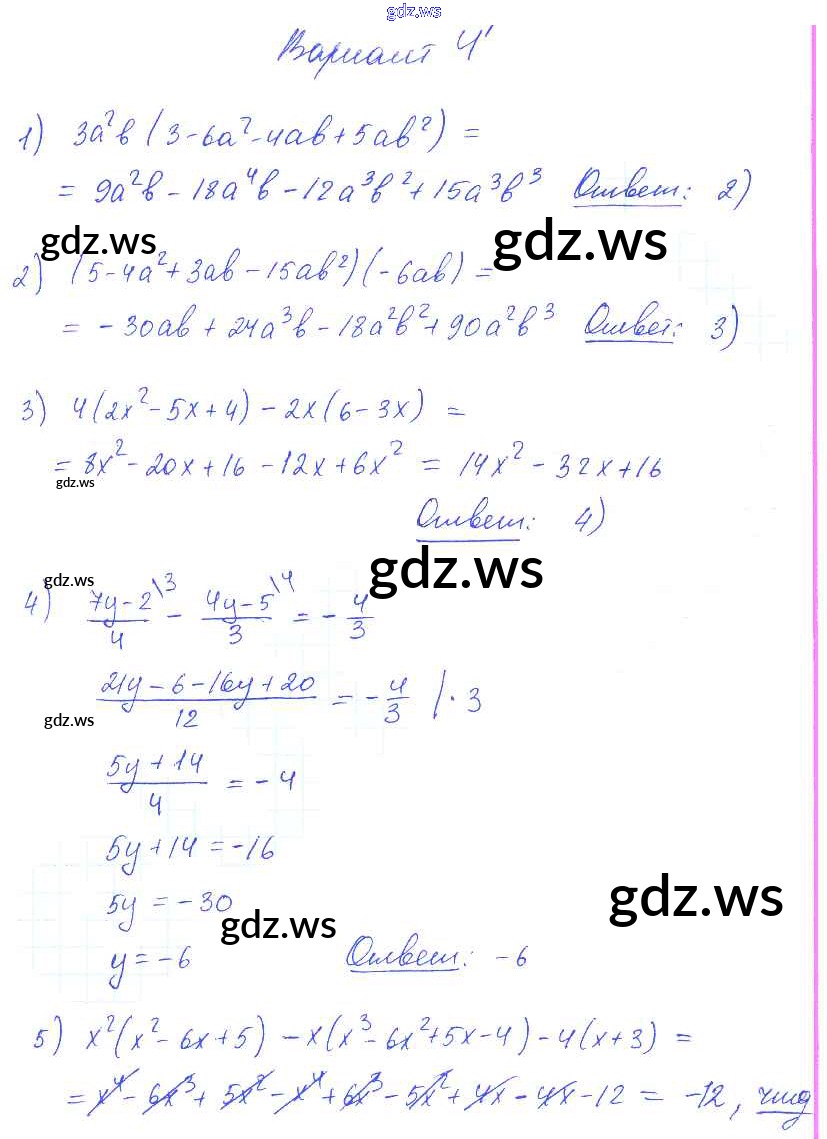 gdz.ws
Вариант 4
1) 3a²b (3-6a²-4ab+5ab²) =
= 9a²b - 18a⁴b - 12a³b² + 15a³b³ Ответ: 2)
gdz.ws gdz.ws
2) (5-4a²+3ab-15ab²)(-6ab) =
= -30ab + 24a³b - 18a²b² + 90a²b³ Ответ: 3)
3) 4(2x²-5x+4) - 2x(6-3x) =
= 8x² - 20x + 16 - 12x + 6x² = 14x² - 32x + 16
gdz.ws
Ответ: 4)
gdz.ws gdz.ws
4) (7y-2)/4 \3 - (4y-5)/3 \4 = -4/3
(21y-6-16y+20)/12 = -4/3 |·3
gdz.ws
(5y+14)/4 = -4
5y+14 = -16
5y = -30
gdz.ws gdz.ws
y = -6 Ответ: -6
5) x²(x²-6x+5) - x(x³-6x²+5x-4) - 4(x+3) =
= x⁴ - 6x³ + 5x² - x⁴ + 6x³ - 5x² + 4x - 4x - 12 = -12, чтд